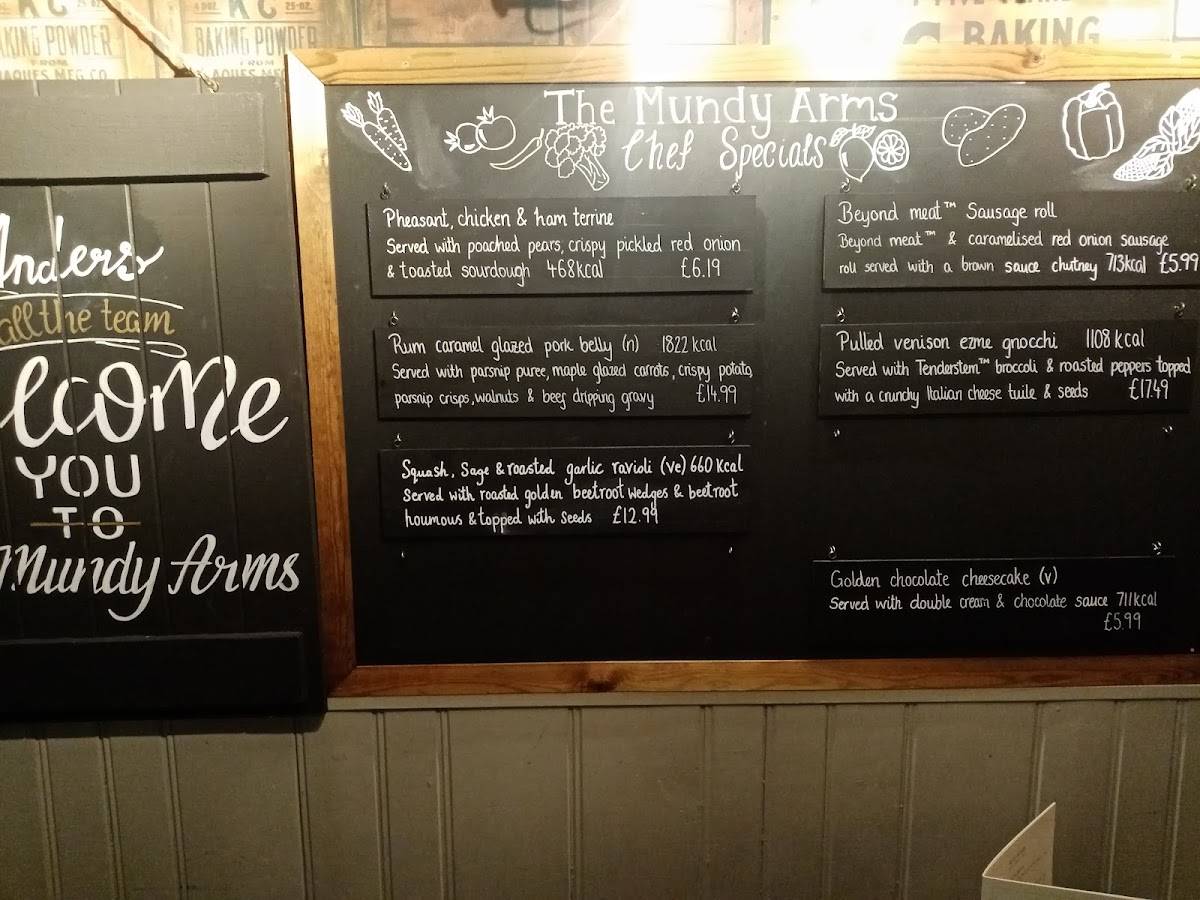 BAKING POWDER
FROM
BAKING POWDER
FROM
JAQUES MFG CO.
BAKING
Anders
all the team
YOU
TO
Mundy Arms
The Mundy Arms
Chef Specials
Pheasant, chicken & ham terrine
Served with poached pears, crispy pickled red onion
& toasted sourdough 468kcal £6.19
Rum caramel glazed pork belly (n) 1822 kcal
Served with parsnip puree, maple glazed carrots, crispy potato,
parsnip crisps, walnuts & beef dripping gravy £14.99
Squash, Sage & roasted garlic ravioli (ve) 660 Kcal
Served with roasted golden beetroot wedges & beetroot
houmous & topped with seeds £12.99
Beyond meat™ Sausage roll
Beyond meat™ & caramelised red onion sausage
roll served with a brown sauce chutney 713kcal £5.99
Pulled venison ezme gnocchi 1108 kcal
Served with Tenderstem™ broccoli & roasted peppers topped
with a crunchy Italian cheese tuile & seeds £17.49
Golden chocolate cheesecake (v)
Served with double cream & chocolate sauce 711kcal
£5.99